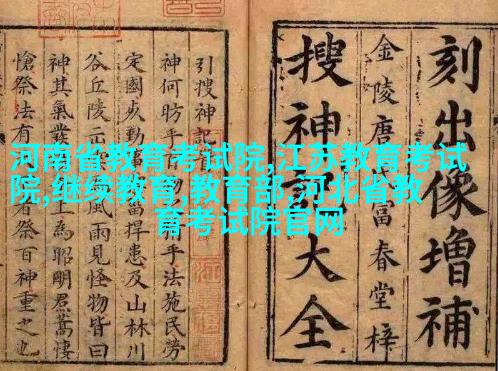 河南省教育考试院,江苏教育考试
院,继续教育,教育部,河北省教
育考试院官网
刻出像增補
金陵唐富春堂梓
搜神大全
引搜神記首
神何昉乎手法施民勞
定國捍患及山林川
谷丘陵風雨見怪物皆曰
神其氣發上為昭明焄蒿悽
愴祭法有祭百神重之也